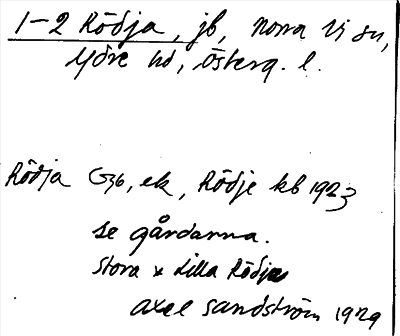 1-2 Rödja, jb, Norra Vi sn,
Ydre hd, Österg. l.
Rödja G36, ek, Rödje kb 1923
se gårdarna.
Stora & Lilla Rödja
Axel Sandström 1929